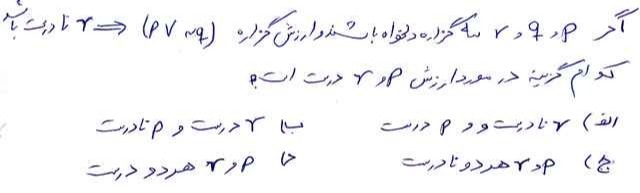 اگر p و q و r سه گزاره دلخواه باشند و ارزش گزاره (p ∨ ~q) ⇒ r نادرست باشد
کدام گزینه در مورد ارزش p و r درست است؟
الف) r نادرست و p درست ب) r درست و p نادرست
ج) p و r هر دو نادرست د) p و r هر دو درست